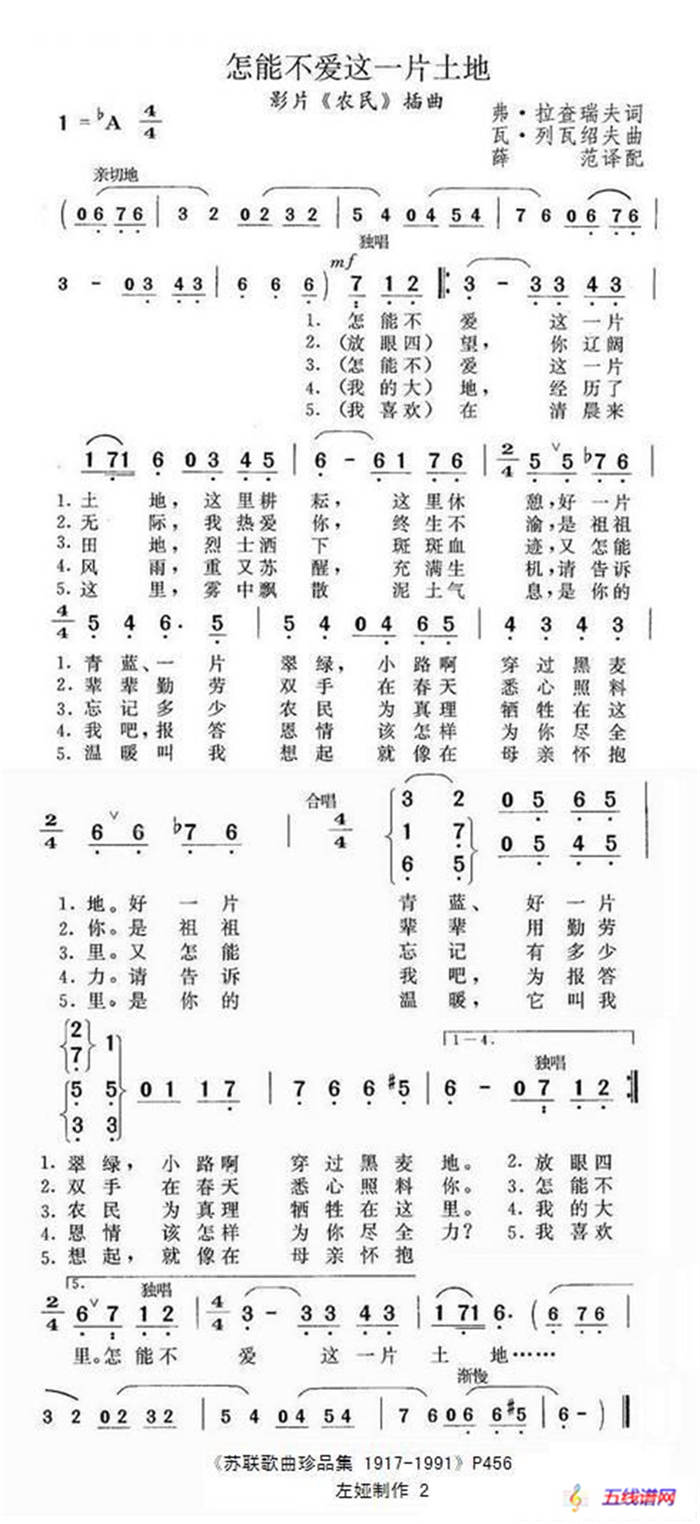 怎能不爱这一片土地
影片《农民》插曲
1=♭A 4/4
弗·拉查瑞夫词
瓦·列瓦绍夫曲
薛 范译配
亲切地
( 0676 | 3 2 0232 | 5 4 0454 | 7 6 0676 |
独唱
mf
3 - 03 43 | 6 6 6 ) 7 12 ‖: 3 - 33 43 |
1. 怎能不 爱 这一片
2.(放眼四)望， 你辽阔
3.(怎能不)爱 这一片
4.(我的大)地， 经历了
5.(我喜欢)在 清晨来
1 71 6 03 45 | 6 - 61 76 | 2/4 5 ∨ 5 ♭76 |
1.土 地，这里耕 耘，这里休 憩，好一片
2.无 际，我热爱 你，终生不 渝，是祖祖
3.田 地，烈士洒 下 斑斑血 迹，又怎能
4.风 雨，重又苏 醒，充满生 机，请告诉
5.这 里，雾中飘 散 泥土气 息，是你的
4/4 5 4 6. 5 | 5 4 04 65 | 4 3 4 3 |
1.青蓝、一片 翠绿，小路啊 穿过黑麦
2.辈辈勤劳 双手 在春天 悉心照料
3.忘记多少 农民 为真理 牺牲在这
4.我吧，报答 恩情 该怎样 为你尽全
5.温暖叫我 想起 就像在 母亲怀抱
合唱
2/4 6 ∨ 6 ♭7 6 | 4/4 3 2 05 65 |
1 7 05 45
6 5
1.地。好 一片 青蓝、 好一片
2.你。是 祖祖 辈辈 用勤劳
3.里。又 怎能 忘记 有多少
4.力。请 告诉 我吧， 为报答
5.里。是 你的 温暖， 它叫我
1-4.
独唱
2 1
7
5 5 01 17 | 7 6 6 ♯5 | 6 - 07 12 :‖
3 3
1.翠绿，小路啊 穿过黑麦 地。2.放眼四
2.双手 在春天 悉心照料 你。3.怎能不
3.农民 为真理 牺牲在这 里。4.我的大
4.恩情 该怎样 为你尽全 力？5.我喜欢
5.想起，就像在 母亲怀抱
5.
独唱
2/4 6 ∨ 7 12 | 4/4 3 - 33 43 | 1 71 6. ( 6 76 |
里。怎能不 爱 这一片 土 地……
渐慢
3 2 02 32 | 5 4 04 54 | 7 6 06 6♯5 | 6 - ) ‖
《苏联歌曲珍品集 1917-1991》P456
左娅制作 2
五线谱网